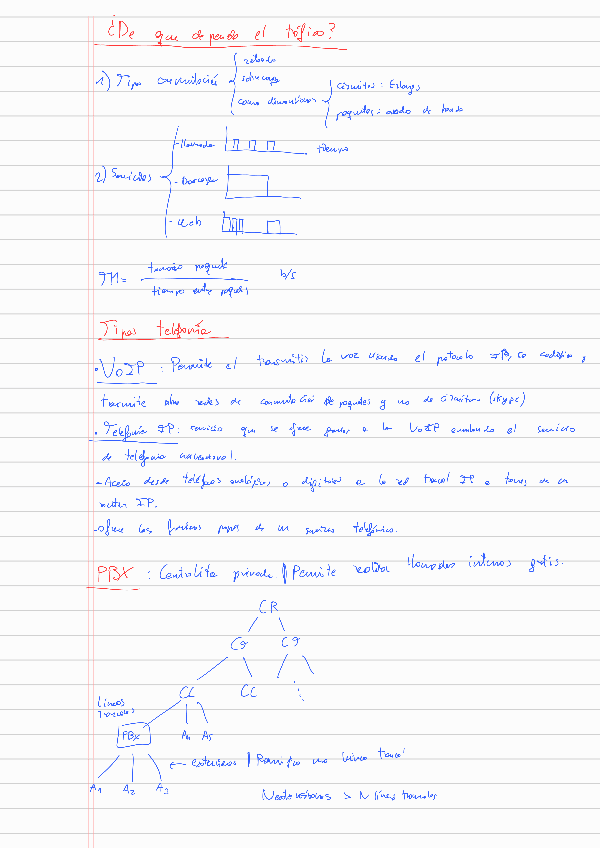 ¿De que depende el tráfico?
1) Tipo conmutación
retardo
como dimensionas
circuitos: Erlangs
paquetes: ancho de banda
2) Servicios
- Llamada
tiempo
- Descarga
- Web
tamaño paquete
tiempo entre paquetes
b/s
Tipos telefonía
· VoIP : Permite el transmitir la voz usando el protocolo IP, se codifica y
transmite sobre redes de conmutación de paquetes y no de circuitos (skype)
· Telefonía IP: servicio que se ofrece gracias a la VoIP emulando el servicio
de telefonía tradicional.
- Acceso desde teléfonos analógicos o digitales a la red troncal IP a través de un
router IP.
- Ofrece las funciones propias de un servicio telefónico.
PBX : Centralita privada || Permite realizar llamadas internas gratis.
CR
CC CC
Líneas
Troncales
PBX A4 A5
← extensiones || Ramifica una línea troncal
A1 A2 A3
> N líneas troncales